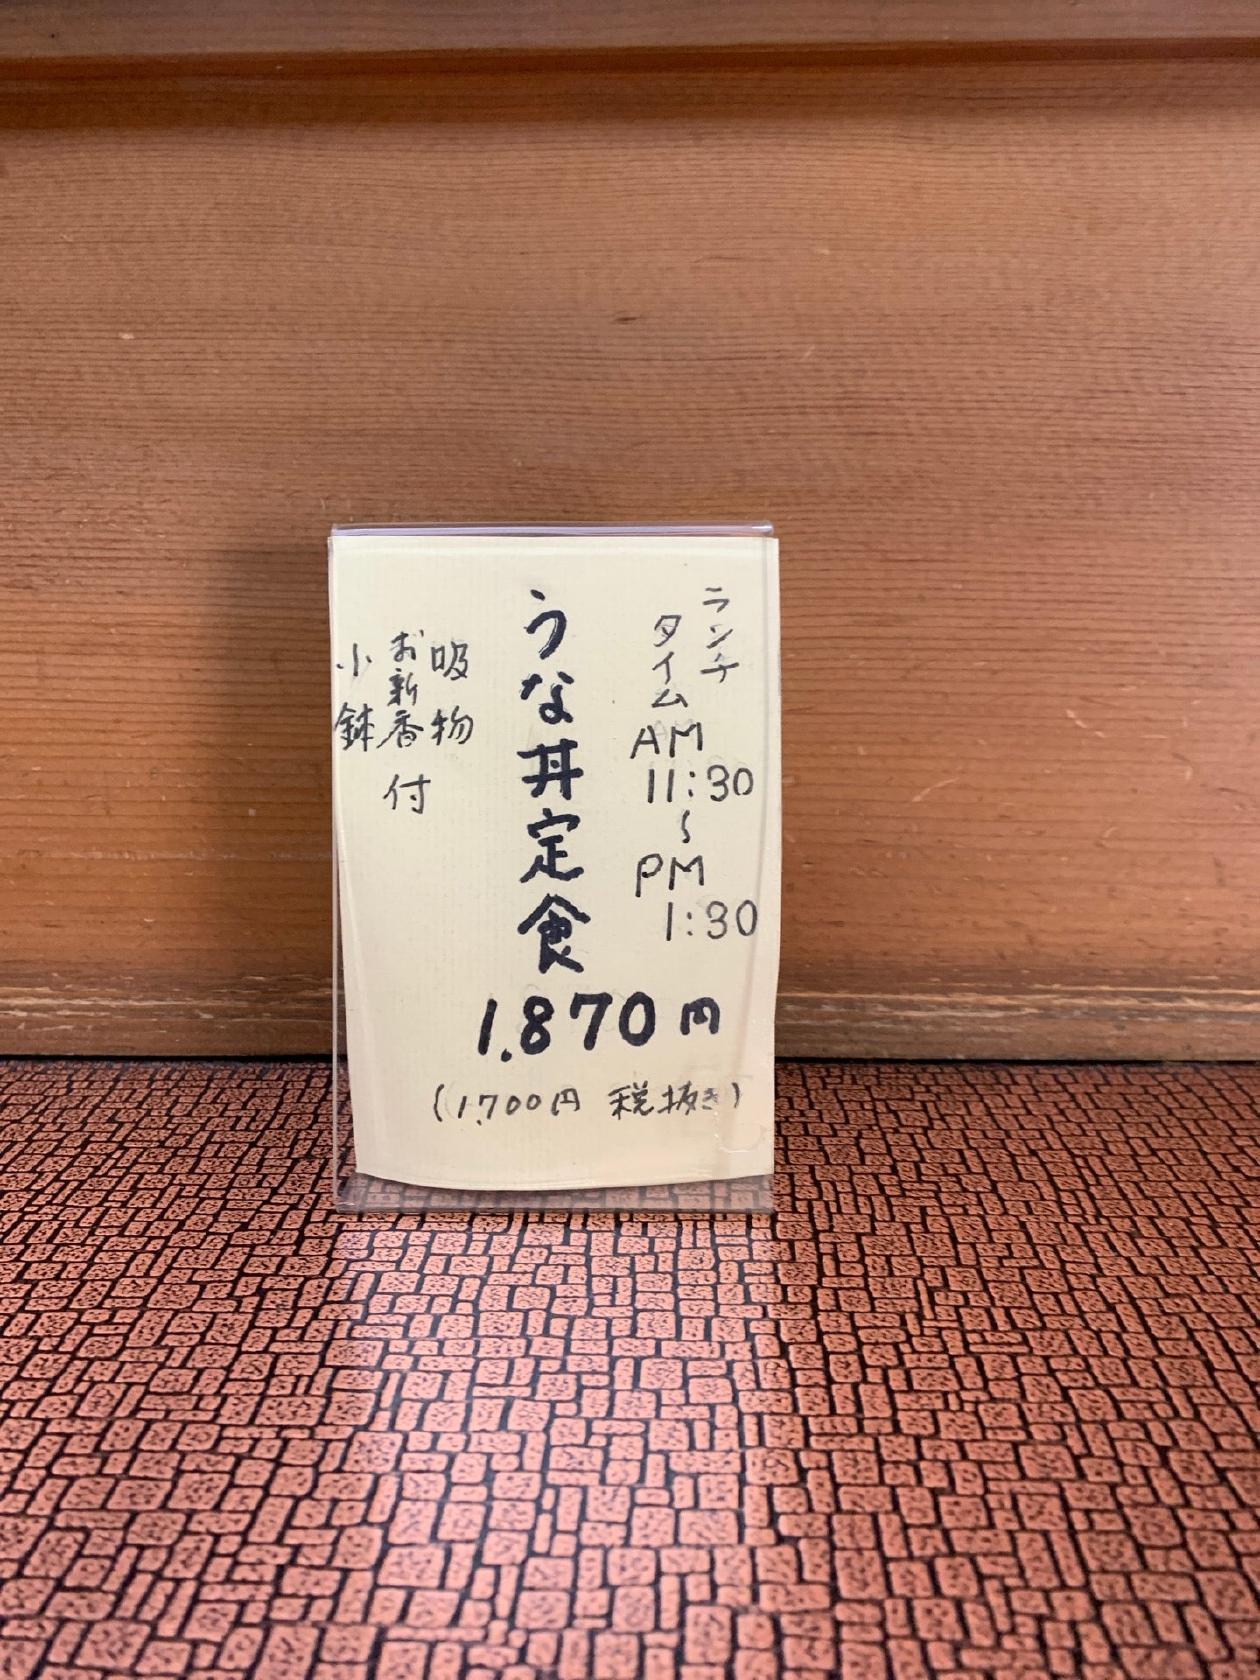 ランチ
タイム
AM
11:30
〜
PM
1:30
うな丼定食
1.870円
(1.700円 税抜き)
吸物
お新香付
小鉢